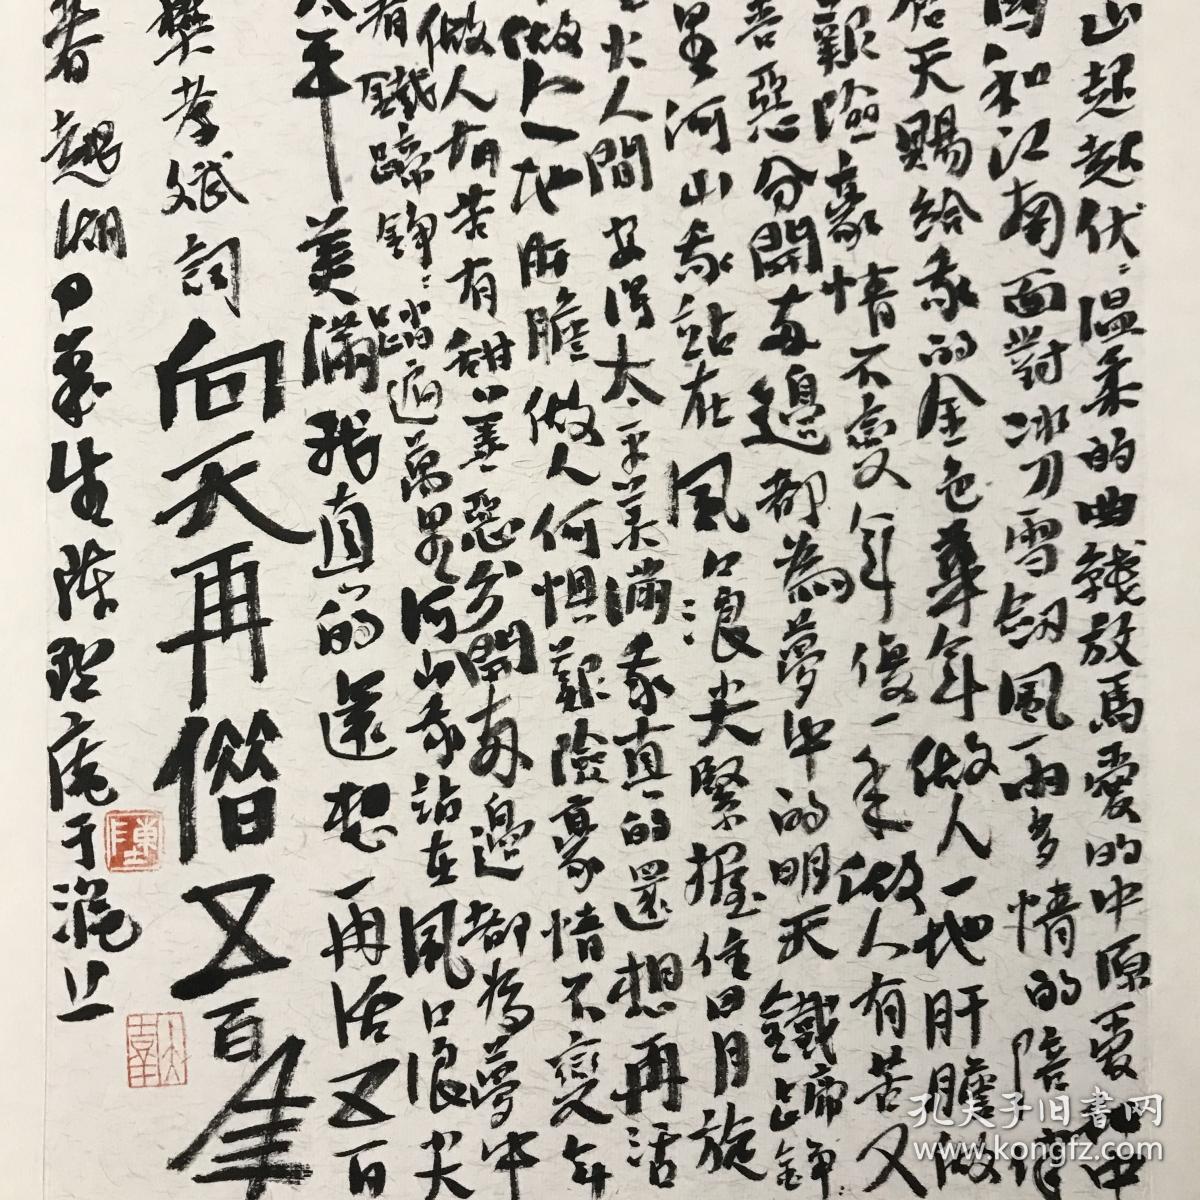 山起起伏〻溫柔的曲綫放馬愛的中原愛
國和江南面對冰刀雪劍風雨多情的陪伴
蒼天賜給我的金色華年做人一地肝膽做
艱險豪情不變年復一年做人有苦又
善惡分開兩邊都為夢中的明天鐵蹄錚〻
里河山我站在風口浪尖緊握住日月旋
火人間安得太平美滿我真的還想再活
做人一地肝膽做人何懼艱險豪情不變年
做人有苦有甜善惡分開兩邊都為夢中
有鐵蹄錚〻踏遍萬里河山我站在風口浪尖
太平美滿我真的還想再活五百
樊孝斌詞向天再借五百年
春湖生陳聖庵于滬上
陳
孔夫子旧书网
www.kongfz.com